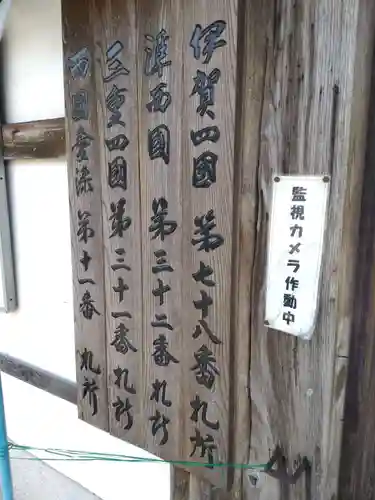 監視カメラ作動中
伊賀四国 第七十八番札所
津西国 第三十二番札所
三重四国 第三十一番札所
西国愛染 第十一番 札所